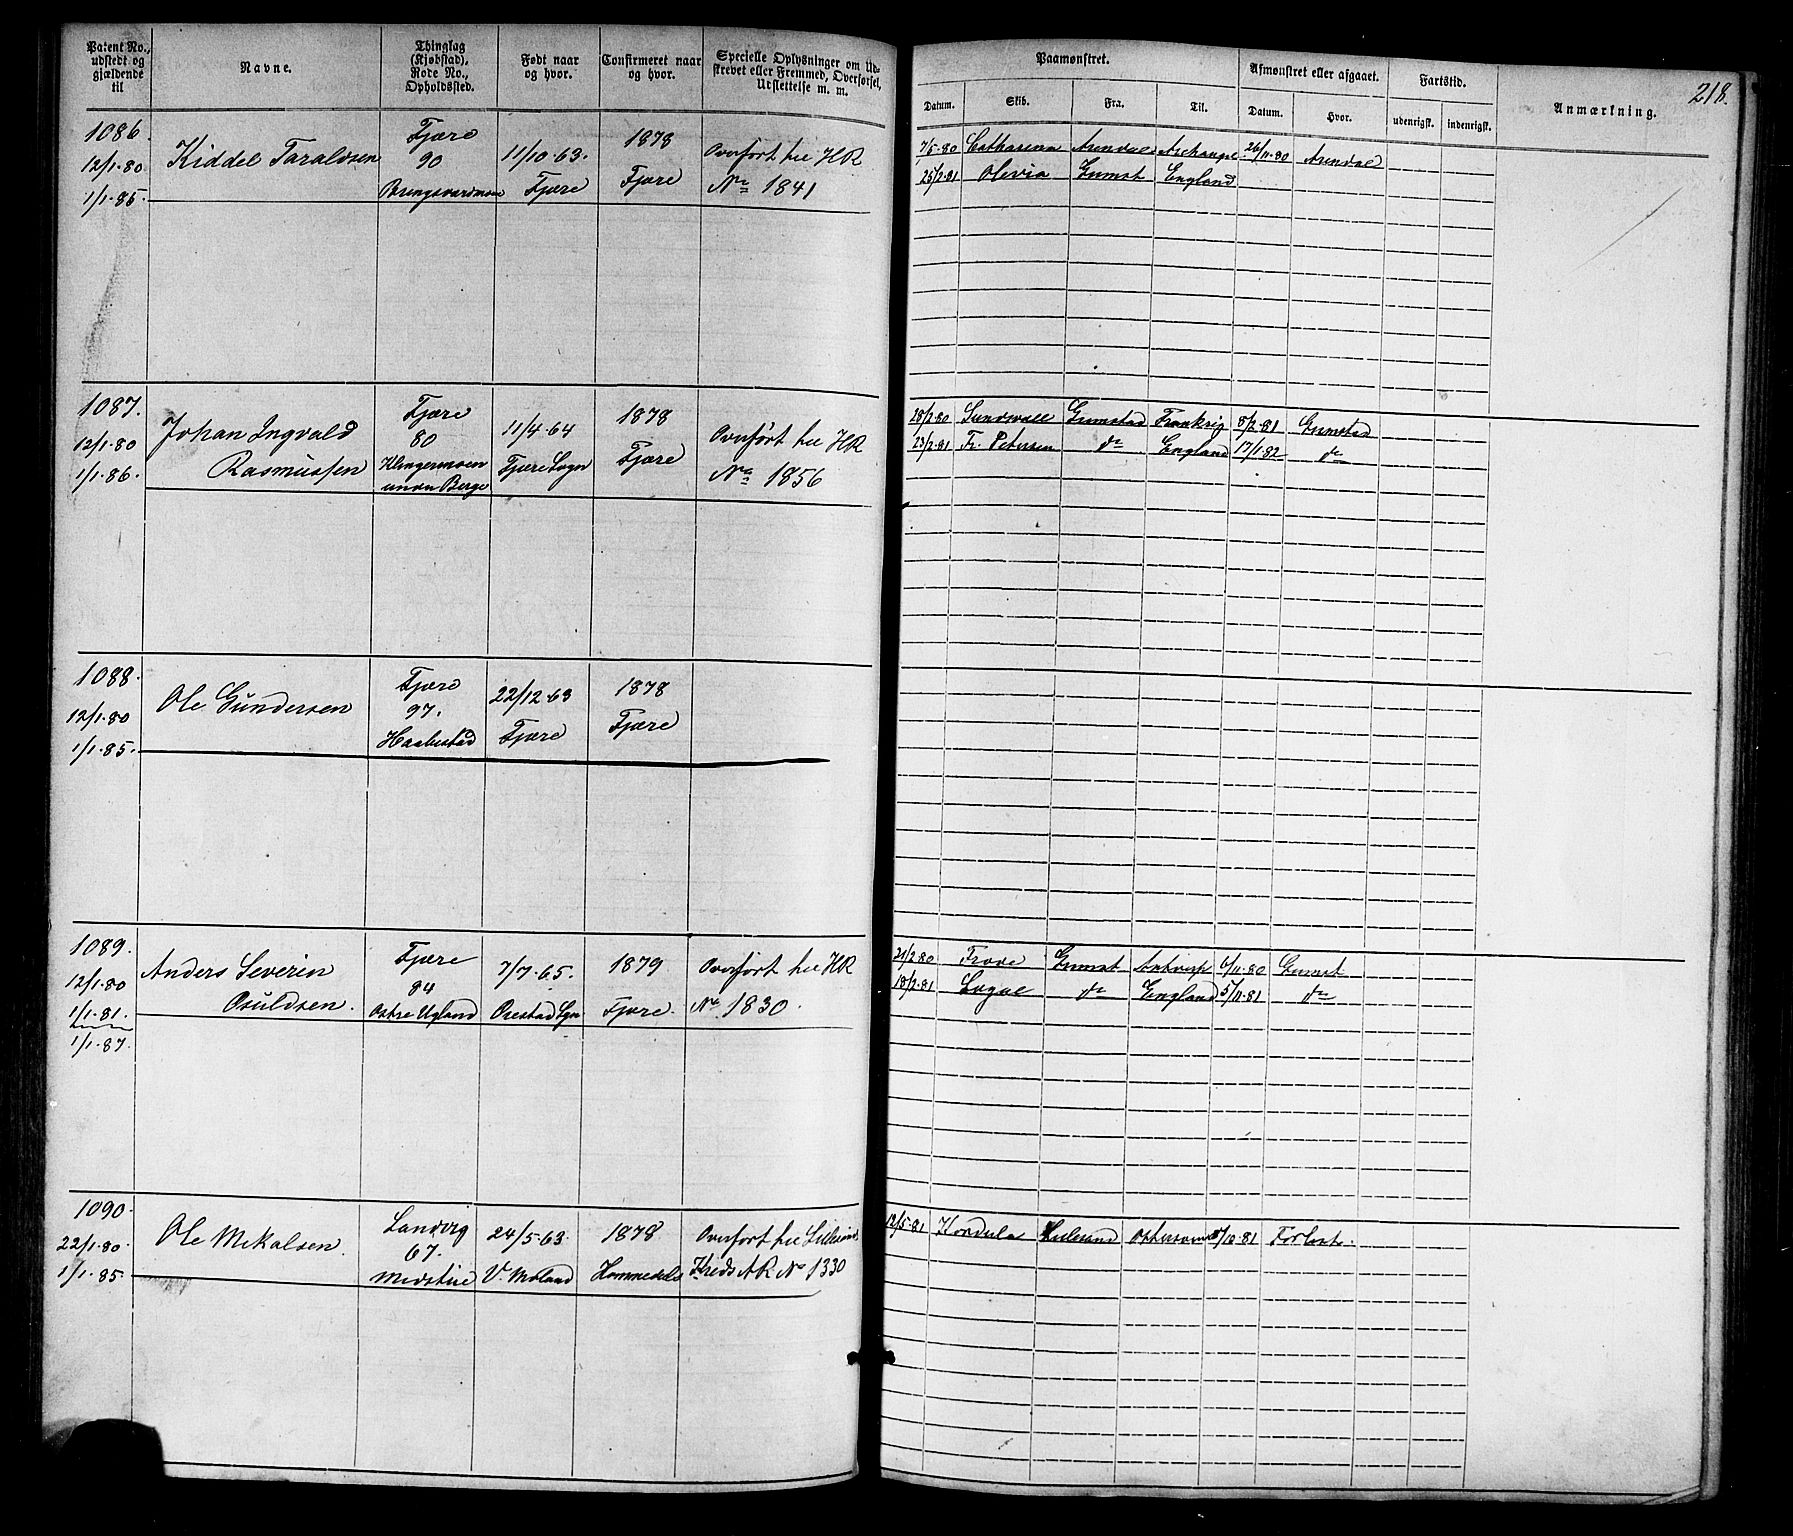 Patent No., udstedt og gjældende til
Navne.
Thinglag (Kjøbstad), Rode No., Opholdssted.
Født naar og hvor.
Confirmeret naar og hvor.
Specielle Oplysninger om Udskrevet eller Fremmed, Overførsel, Udslettelse m. m.
Paamønstret.
Datum.
Skib.
Fra.
Til.
Afmønstret eller afgaaet.
Datum.
Hvor.
Fartstid.
udenrigsk.
indenrigsk.
Anmærkning.
218.
1086.
12/1.80
1/1.85.
Kiddel Taraldsen
Fjære
90
Bringsværdmoen
11/10.63.
Fjære
1878
Fjære
Overført til HR
No 1841
7/5.80 Catharina Arendal Archangel 26/11.80 Arendal
25/2.81 Olivia Grimst England
1087.
12/1.80
1/1.86.
Johan Ingvald
Rasmussen
Fjære
80
Klingermoen
under Berge
11/4.64
Fjære Sogn
1878
Fjære
Overført til HR
No 1856
28/2.80 Sundsvall Grimstad Frankrig 8/2.81 Grimstad
23/2.81 Fr. Petersen do England 17/1.82 do
1088.
12/1.80
1/1.85.
Ole Gundersen
Fjære
97.
Haabestad
22/12.63
Fjære
1878
Fjære
1089.
12/1.80
1/1.81.
1/1.87.
Anders Severin
Osuldsen.
Fjære
84
Østre Ugland
7/7.65.
Øiestad Sgn
1879
Fjære.
Overført til HR
No. 1830.
21/2.80 Frode Grimst Antwerp 6/11.80 Grimst
18/2.81 Logal do England 5/11.81 do
1090.
22/1.80.
1/1.85.
Ole Mikalsen.
Landvig
67.
Midstue
24/5.63.
V. Moland
1878
Hommedals
Overført til Lillesands
Kreds AR No 1330
12/5.81 Kordula Lillesand Østersøen /10.81 Forlist.